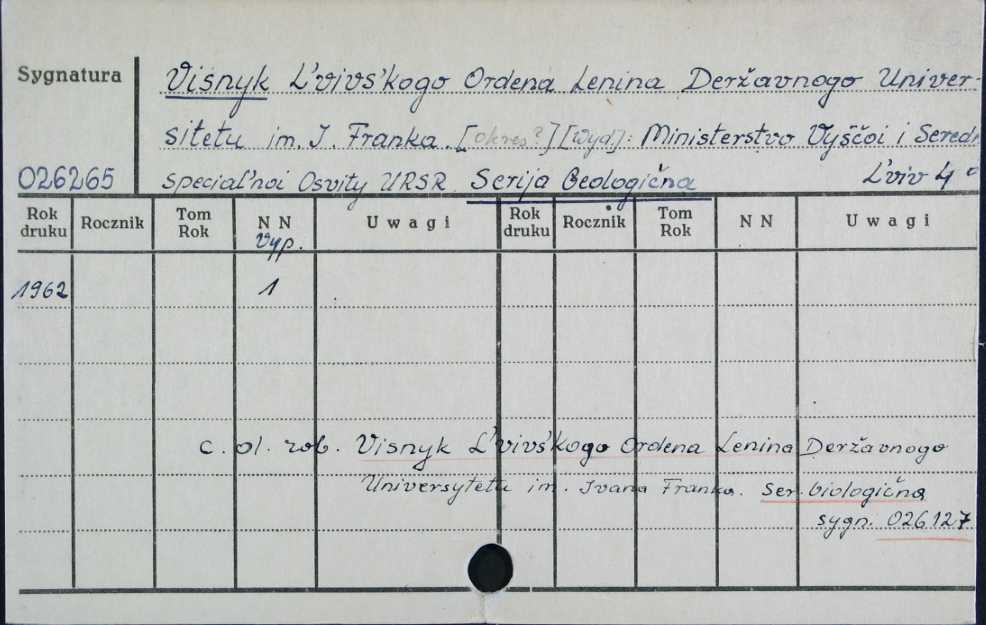 Sygnatura
Visnyk L'vivs'kogo Ordena Lenina Deržavnogo Univer-
sitetu im. I. Franka. [okres?] [Wyd.]: Ministerstvo Vyščoi i Seredn
026265
special'noi Osvity URSR. Serija Geologična L'viv 4°
Rok druku Rocznik Tom Rok N N Uwagi Rok druku Rocznik Tom Rok N N Uwagi
Vyp.
1962 1
c. ol. rob. Visnyk L'vivs'kogo Ordena Lenina Deržavnogo
Universytetu im. Ivana Franka. Ser. biologična
sygn. 026127